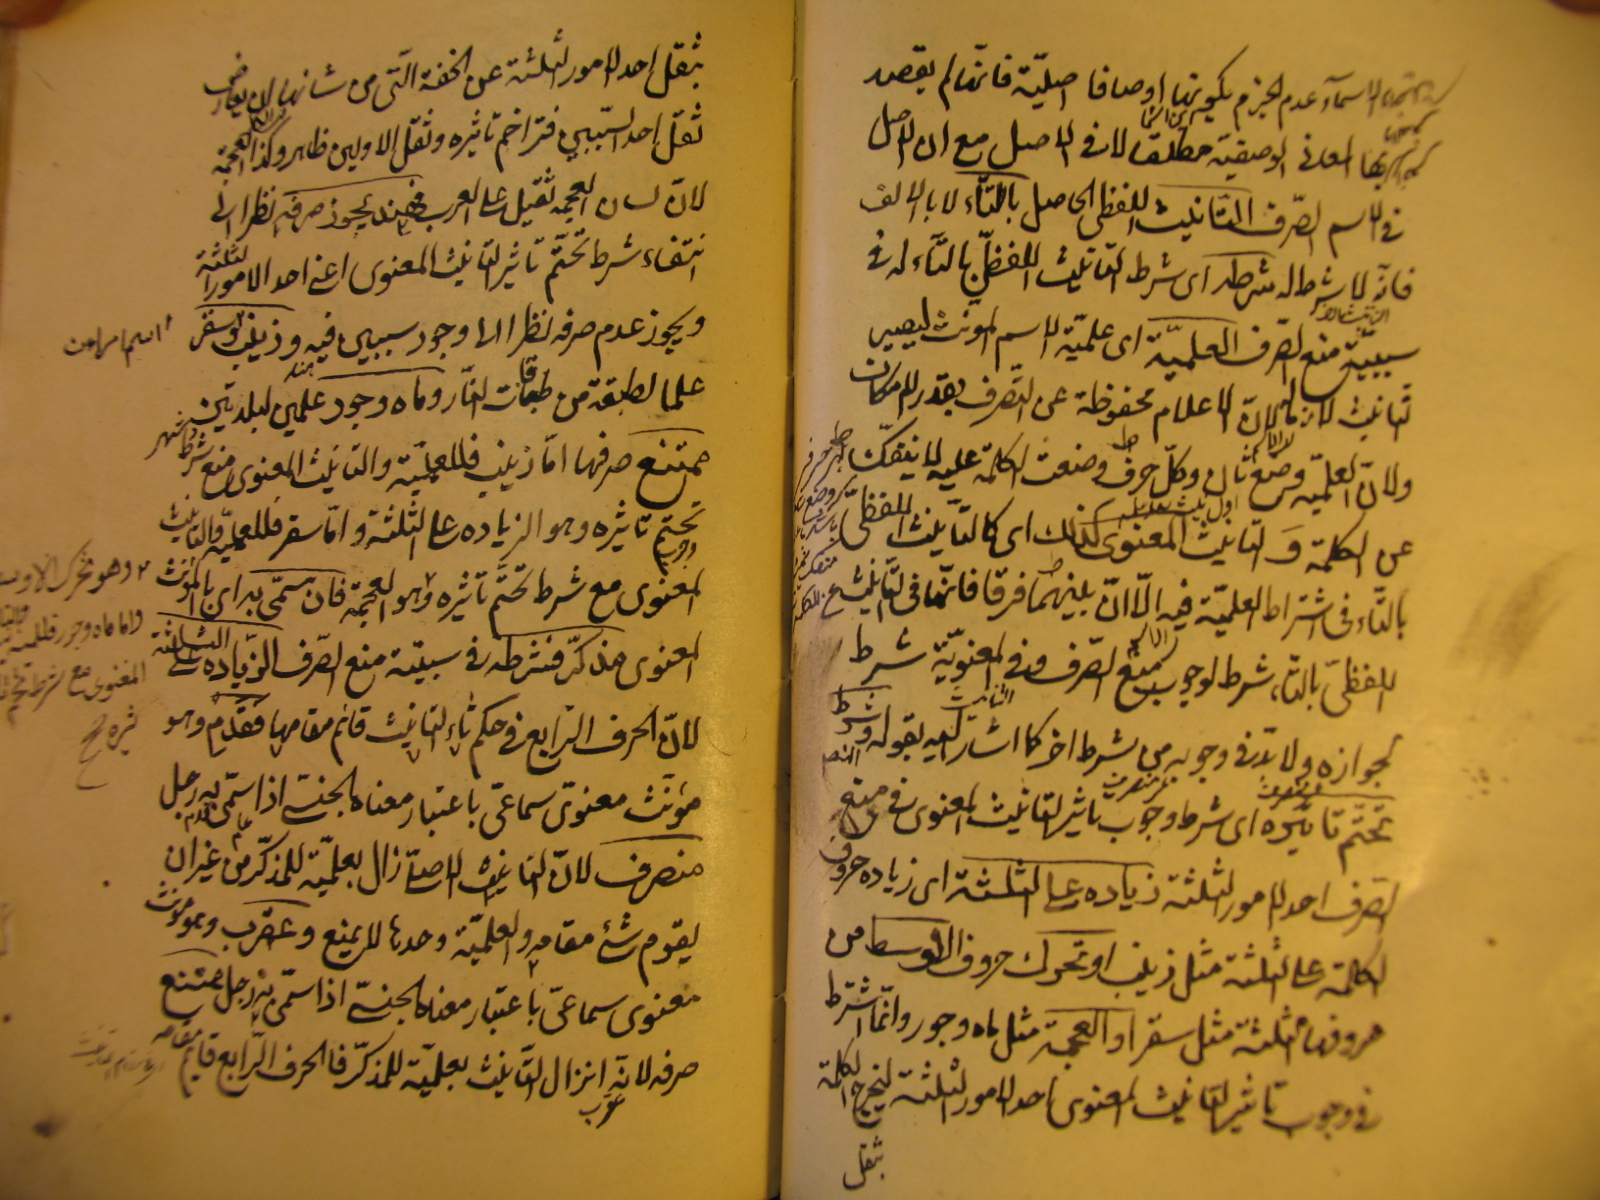 الاسماء عدم الجزم بكونها اوصافا اصلية فانها لم يقصد
بها المعانى الوصفية مطلقا لا فى الاصل مع ان الاصل
فى الاسم الصرف التانيث اللفظى الحاصل بالتاء لا بالالف
فانه لا شرط له شرطه اى شرط التانيث اللفظى بالتاء له فى
سببية منع الصرف العلمية اى علمية الاسم المؤنث ليصير
التانيث لازما لان الاعلام محفوظة عن التصرف بقدر الامكان
ولان العلمية وضع ثان وكل حرف وضعت الكلمة عليه لا ينفك
عن الكلمة و التانيث المعنوى كذلك اى كالتانيث اللفظى
بالتاء فى اشتراط العلمية فيه الا ان بينهما فرقا فانها فى التانيث
اللفظى بالتاء شرط لوجوب منع الصرف وفى المعنوية شرط
لجوازه ولا بد فى وجوبه من شرط اخر كما اشار اليه بقوله وشرط
تحتم تاثيره اى شرط وجوب تاثير التانيث المعنوى فى منع
الصرف احد الامور الثلثة زياده على الثلثة اى زياده حروف
الكلمة على الثلثة مثل زينب او تحرك حروف الاوسط من
حروفها الثلثة مثل سقر او العجمة مثل ماه وجور وانما اشترط
فى وجوب تاثير التانيث المعنوى احد الامور الثلثة ليخرج الكلمة
بثقل
بثقل احد الامور الثلثة عن الخفة التى من شانها ان يعارض
ثقل احد السببين فتزاحم تاثيره وثقل الاولين ظاهر وكذا العجمة
لان لسان العجم ثقيل على العرب فهند يجوز صرفه نظرا الى
انتفاء شرط تحتم تاثير التانيث المعنوى اعنى احد الامور الثلثة
ويجوز عدم صرفه نظرا الى وجود سببين فيه وزينب وسقر
علما لطبقة من طبقات النار وماه وجور علمين لبلدتين
ممتنع صرفها اما زينب فللعلمية والتانيث المعنوى مع شرط
تحتم تاثيره وهو الزياده على الثلثة واما سقر فللعلمية والتانيث
المعنوى مع شرط تحتم تاثيره وهو العجمة فان سمى به اى بالمؤنث
المعنوى مذكر فشرطه فى سببية منع الصرف الزياده على الثلثة
لان الحرف الرابع فى حكم تاء التانيث قائم مقامها فقدم وهو
مؤنث معنوى سماعى باعتبار معناه الجنسى اذا سمى به رجل
منصرف لان التانيث الاصلى زال بعلمية للمذكر من غير ان
يقوم شئ مقامه والعلمية وحدها لا يمنع وعقرب وهو مؤنث
معنوى سماعى باعتبار معناه الجنسى اذا سمى به رجل ممتنع
صرفه لانه ان زال التانيث بعلمية للمذكر فالحرف الرابع قايم مقامه
اسم امراة
وهو تحرك الاوسط
واما ماه وجور فللعلمية
المعنوى مع شرط تحتم
ثيره صح